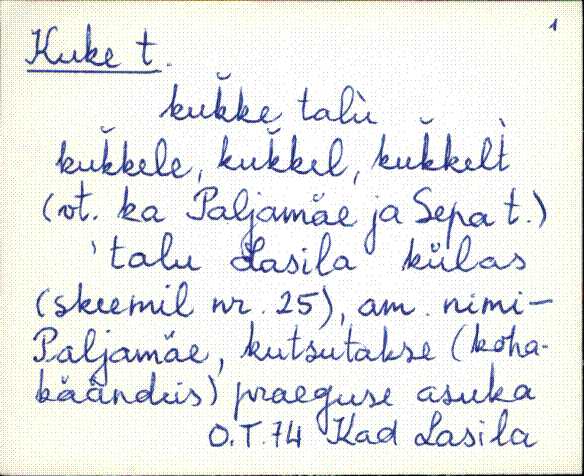 1
Kuke t.
kuk̆ke talù
kuk̆kele, kuk̆kel, kuk̆kelt̀
(vt. ka Paljamäe ja Sepa t.)
'talu Lasila külas
(skeemil nr. 25), am. nimi-
Paljamäe, kutsutakse (koha-
käändeis) praeguse asuka
O.T.74 Kad Lasila